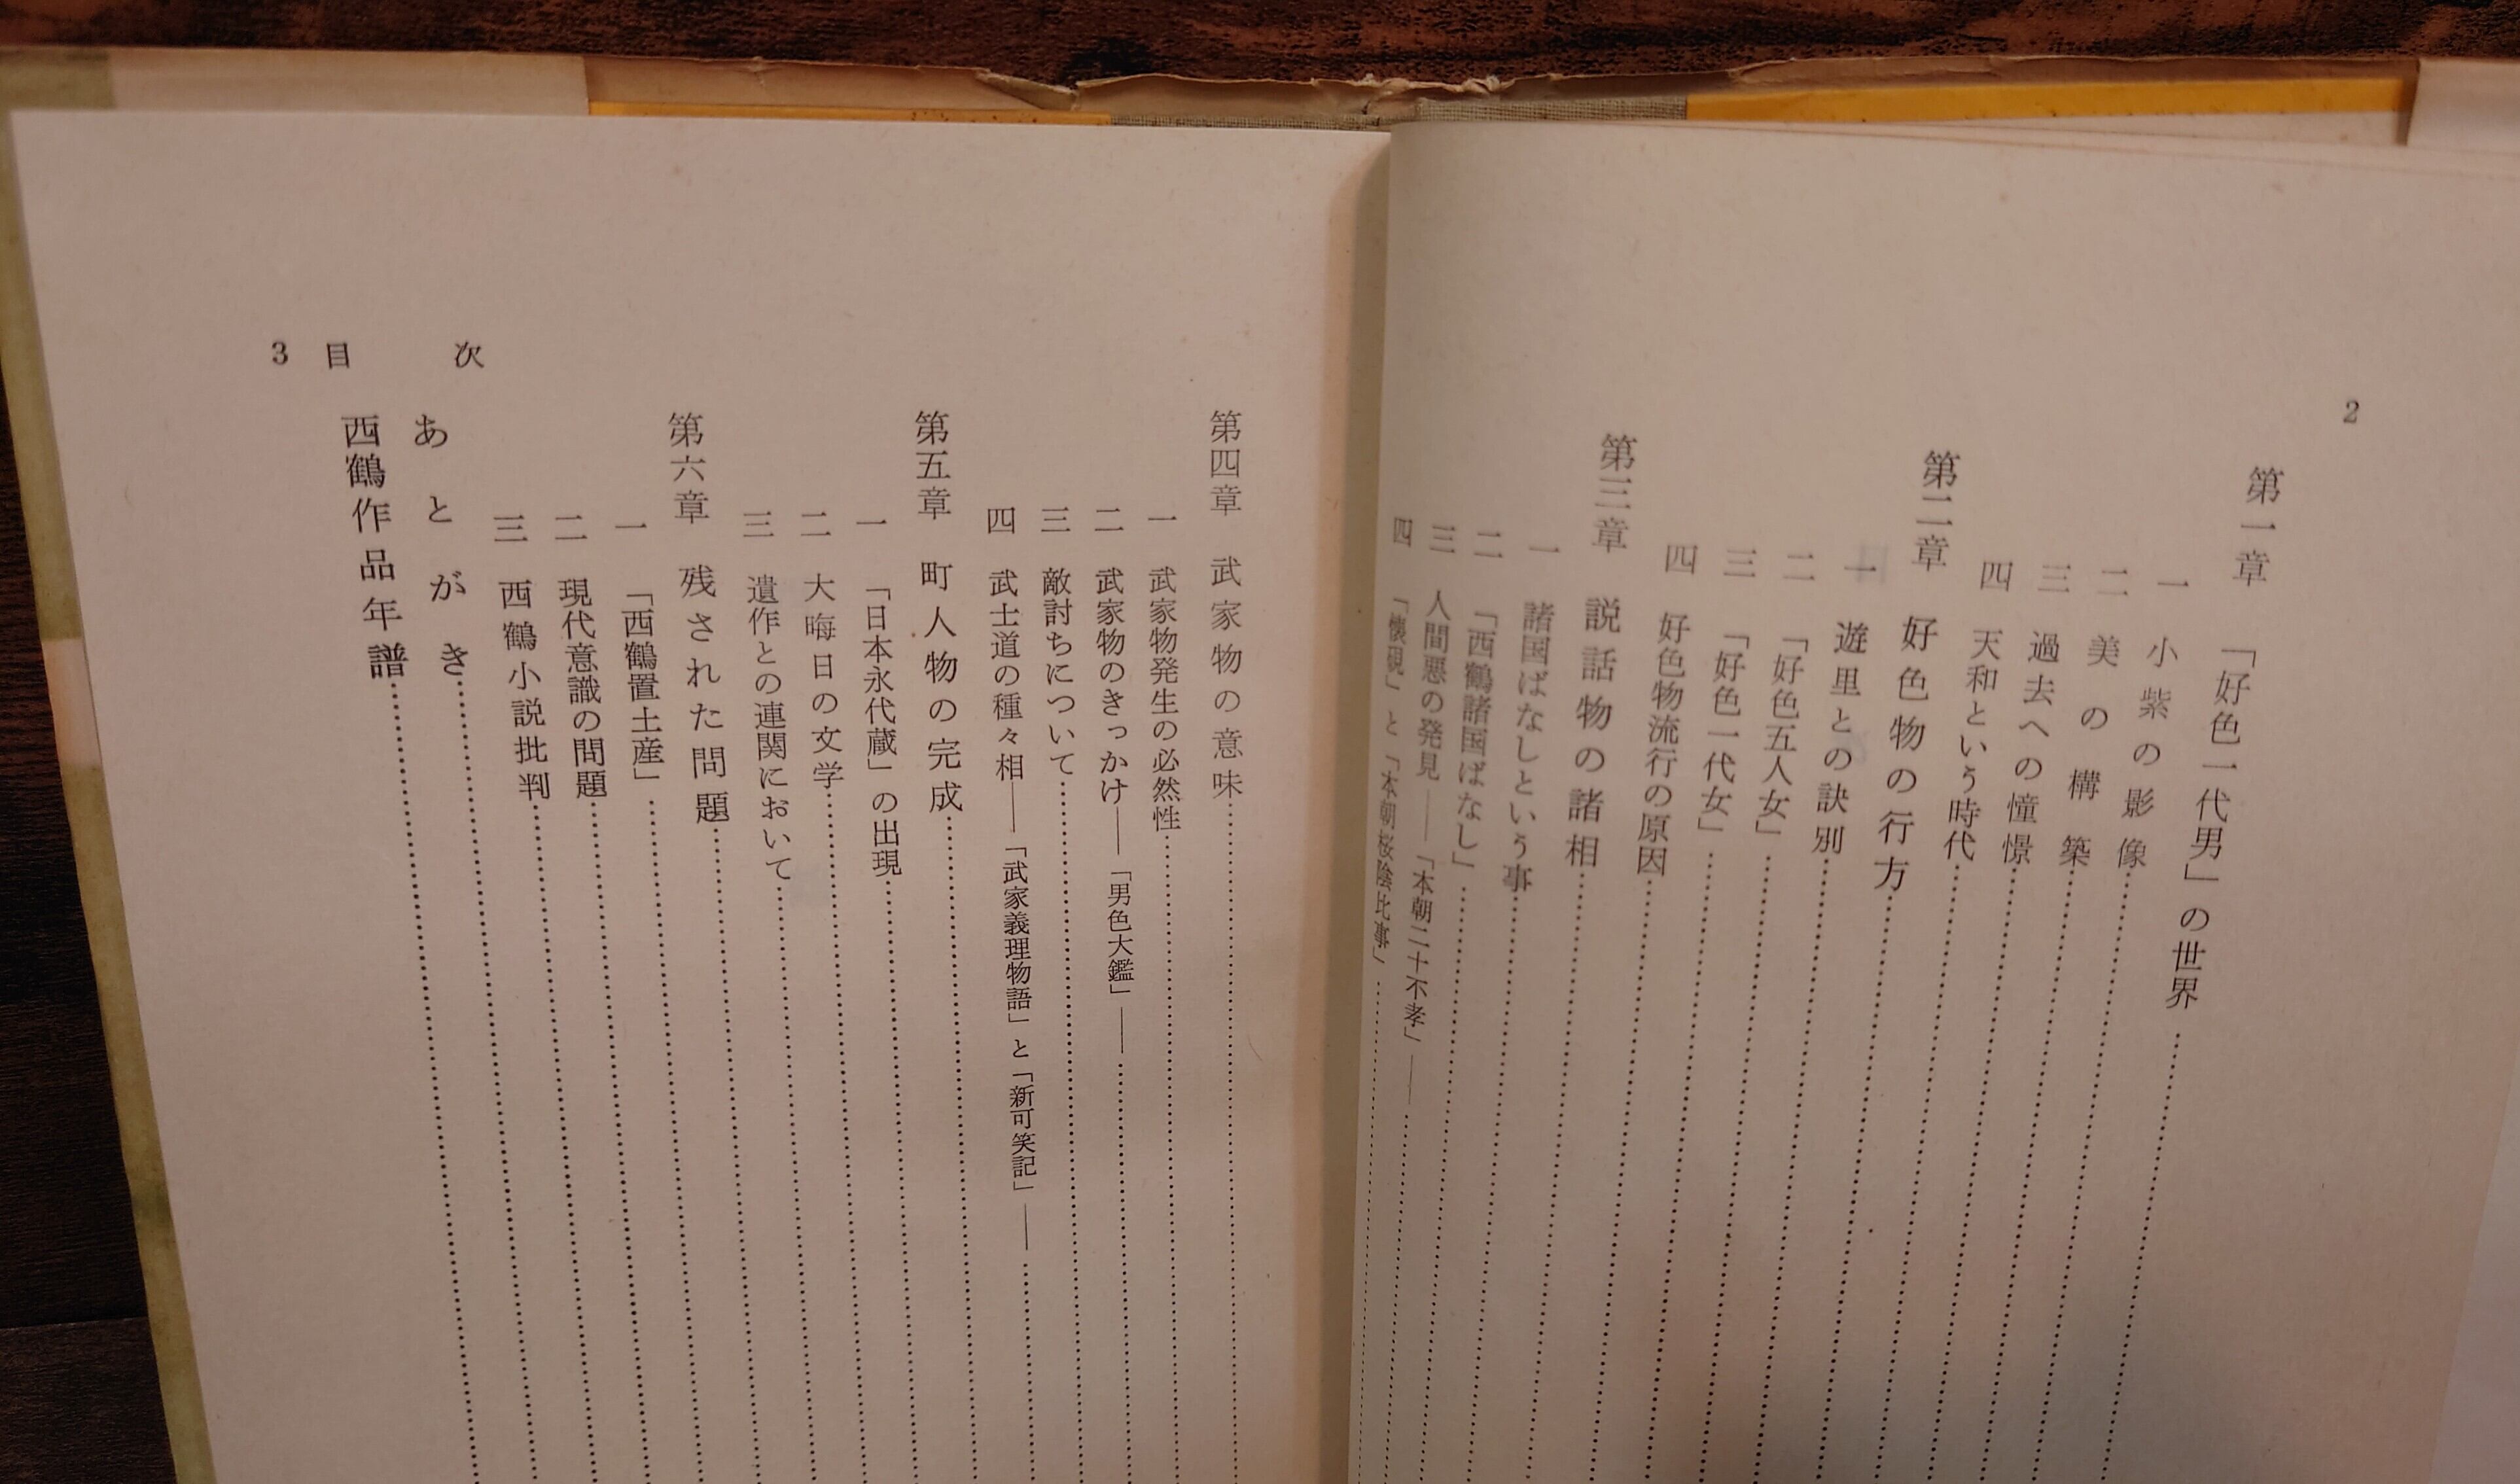 2
第一章 「好色一代男」の世界
一 小紫の影像
二 美の構築
三 過去への憧憬
四 天和という時代
第二章 好色物の行方
一 遊里との訣別
二 「好色五人女」
三 「好色一代女」
四 好色物流行の原因
第三章 説話物の諸相
一 諸国ばなしという事
二 「西鶴諸国ばなし」
三 人間悪の発見――「本朝二十不孝」――
四 「懐硯」と「本朝桜陰比事」
第四章 武家物の意味
一 武家物発生の必然性
二 武家物のきっかけ――「男色大鑑」――
三 敵討ちについて
四 武士道の種々相――「武家義理物語」と「新可笑記」――
第五章 町人物の完成
一 「日本永代蔵」の出現
二 大晦日の文学
三 遺作との連関において
第六章 残された問題
一 「西鶴置土産」
二 現代意識の問題
三 西鶴小説批判
あとがき
西鶴作品年譜
3 目次